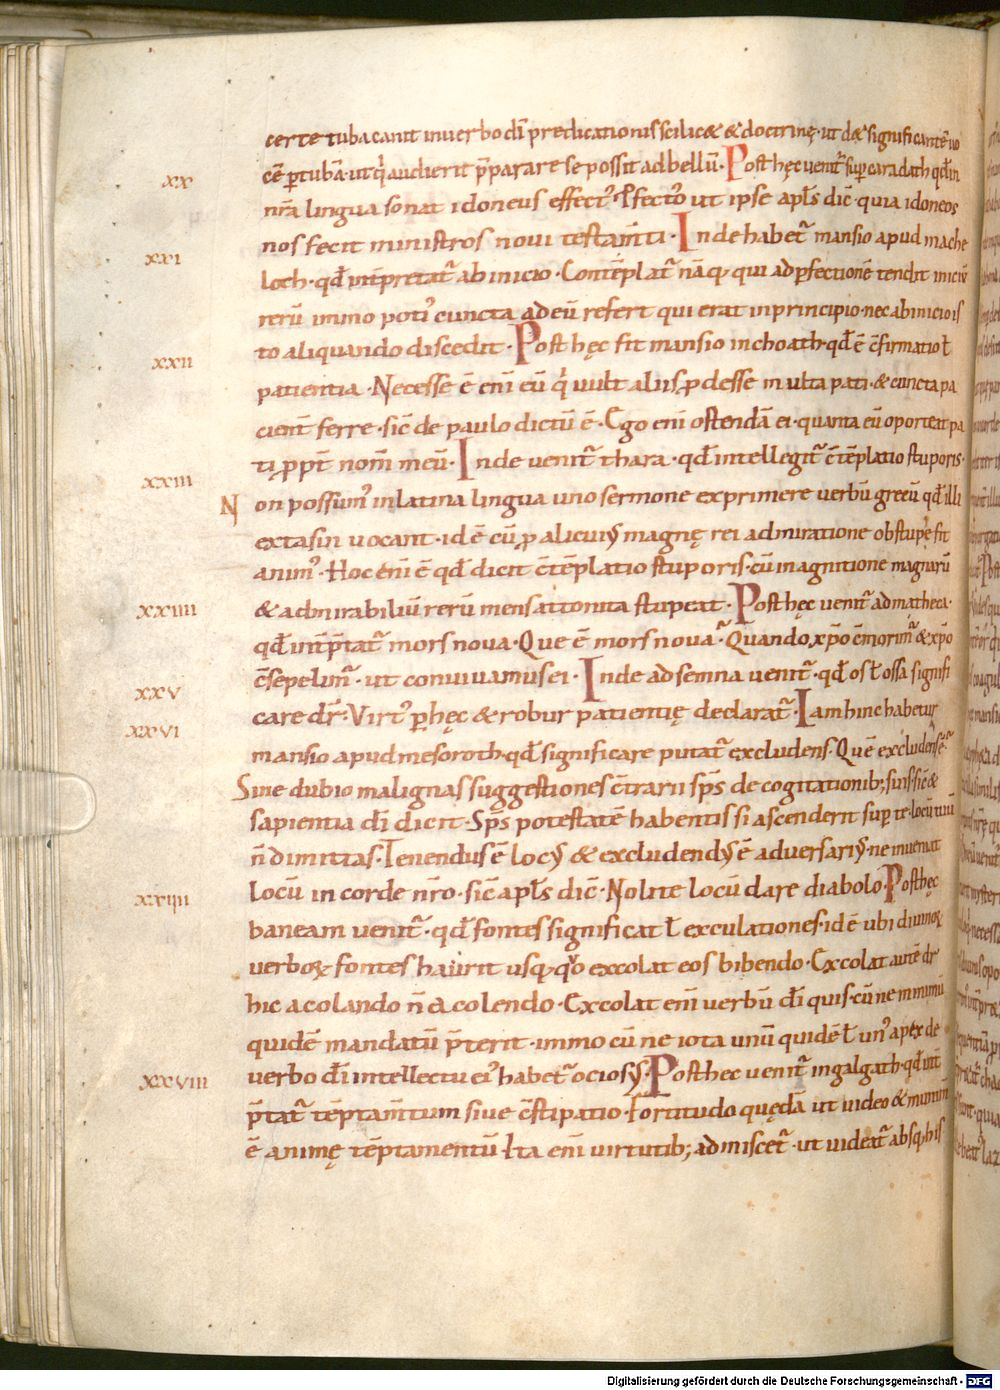 certe tuba canit in uerbo dī predicationis scilic& & doctrinę · ut d& significantē uo
xx
cē p tubā · ut qͥ audierit p̄parare se possit ad bellū · Post hęc uenit̄ sup caradath qd̄ in
nr̄a lingua sonat idoneus effect' · pfecto ut ipse apl̄s dic̄ quia idoneos
nos fecit ministros noui testam̄ti · Inde habet̄ mansio apud mache
xxi
loth · qd̄ int̄pretat̄ ab inicio · Contēplat̄ nāq; qui ad pfectionē tendit iniciū
rerū immo poti' cuncta ad eū refert qui erat in principio · nec ab inicio is
to aliquando discedit · Post hęc fit mansio in choath · qd̄ ē c̄firmatio ł
xxii
patientia · Necesse ē eni eū qͥ uult aliis pdesse multa pati · & cuncta pa
cient̄ ferre · sic̄ de paulo dictū ē · Ego eni ostendā ei · quanta eū oporteat pa
ti ppt̄ nom̄ meū · Inde uenit̄ thara · qd̄ intellegit̄ c̄tēplatio stuporis ·
xxiii
Non possum' in latina lingua uno sermone exprimere uerbū grecū qd̄ illi
extasin uocant · id ē cū p alicui' magnę rei admiratione obstupe fit
anim' · Hoc eni ē qd̄ dicit c̄tēplatio stuporis · cū in agnitione magnarū
xxiiii
& admirabiliū rerū mens attonita stupeat · Post hęc uenit̄ ad matheca ·
qd̄ int̄p̄tat̄ mors noua · Que ē mors noua · Quando xp̄o c̄morim̄ & xp̄o
c̄sepelim̄ · ut conuiuamus ei · Inde ad semna uenit̄ · qd̄ os ł ossa signifi
xxv
care dr̄ · Virt' p hęc & robur patientię declarat̄ · Iam hinc habetur
xxvi
mansio apud mesoroth · qd̄ significare putat̄ excludens · Quē excludens ē
Sine dubio malignas suggestiones c̄trarii sp̄s de cogitationib; suis · sic̄ &
sapientia dī dicit · Sp̄s potestatē habentis si ascenderit sup te · locū tuū
n̄ dimittas · Tenendus ē loc' & excludend' ē aduersari' · ne inueniat
locū in corde nr̄o · sic̄ apl̄s dic̄ · Nolite locū dare diabolo · Post hęc
xxviii
baneam uenit̄ · qd̄ fontes significat ł exculationes · id ē ubi diuinoꝝ
uerboꝝ fontes haurit usq; quo excolat eos bibendo · Excolat autē dr̄
hic a colando n̄ a colendo · Excolat enī uerbū dī quis · cū ne minimū
quidē mandatū p̄terit · immo cū ne iota unū quidē ł un' apex de
uerbo dī intellectu ei' habet̄ ocios' · Post hec uenit̄ in galgath · qd̄ int̄
xxviii
p̄tat̄ tēptam̄tum siue c̄stipatio · fortitudo quędā ut uideo & munim̄
ē animę tēptamentū · Ita enī uirtutib; admiscet̄ · ut uideat̄ absq; his
Digitalisierung gefördert durch die Deutsche Forschungsgemeinschaft - DFG